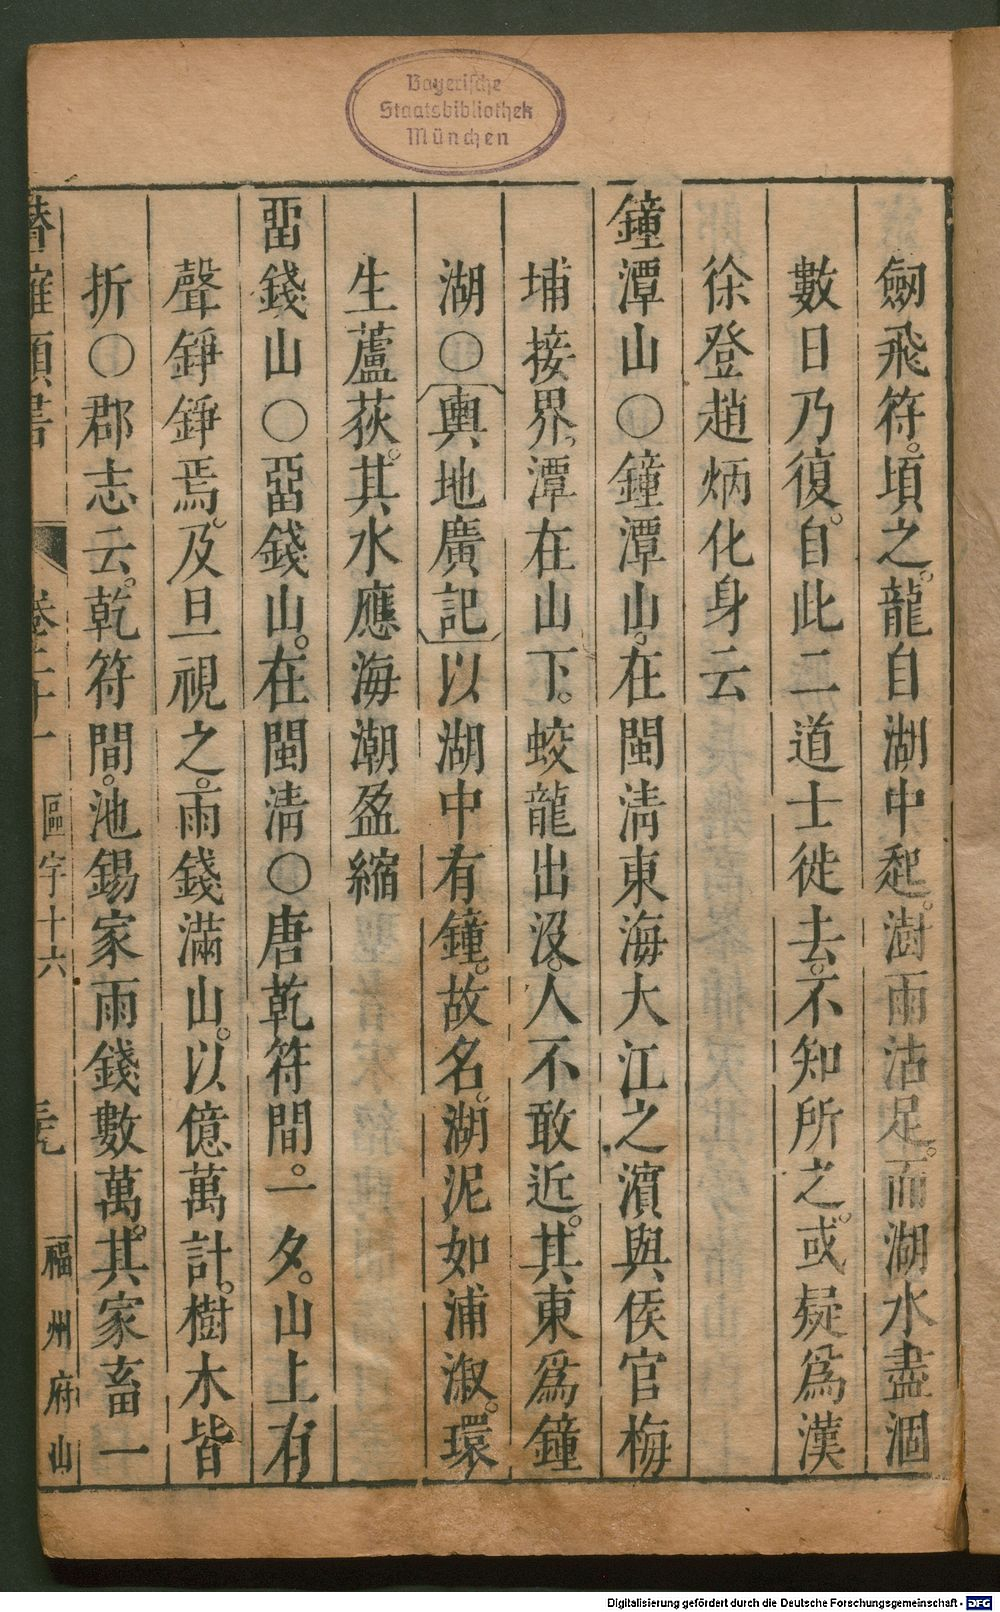 Bayerische
Staatsbibliothek
München
劒飛符。頃之。龍自湖中起。澍雨沾足。而湖水盡涸
數日乃復。自此二道士徙去。不知所之。或疑爲漢
徐登趙炳化身云
鐘潭山〇鐘潭山。在閩淸東海大江之濵與侯官梅
埔接界。潭在山下。蛟龍出沒。人不敢近。其東爲鐘
湖〇輿地廣記以湖中有鐘。故名。湖泥如浦溆。環
生蘆荻。其水應海潮盈縮
畱錢山〇畱錢山。在閩淸〇唐乾符間。一夕。山上有
聲錚錚焉。及旦視之。雨錢滿山。以億萬計。樹木皆
折〇郡志云。乾符間。池錫家雨錢數萬。其家畜一
潛確類書 卷二十一 區宇十六 福州府山
Digitalisierung gefördert durch die Deutsche Forschungsgemeinschaft - DFG